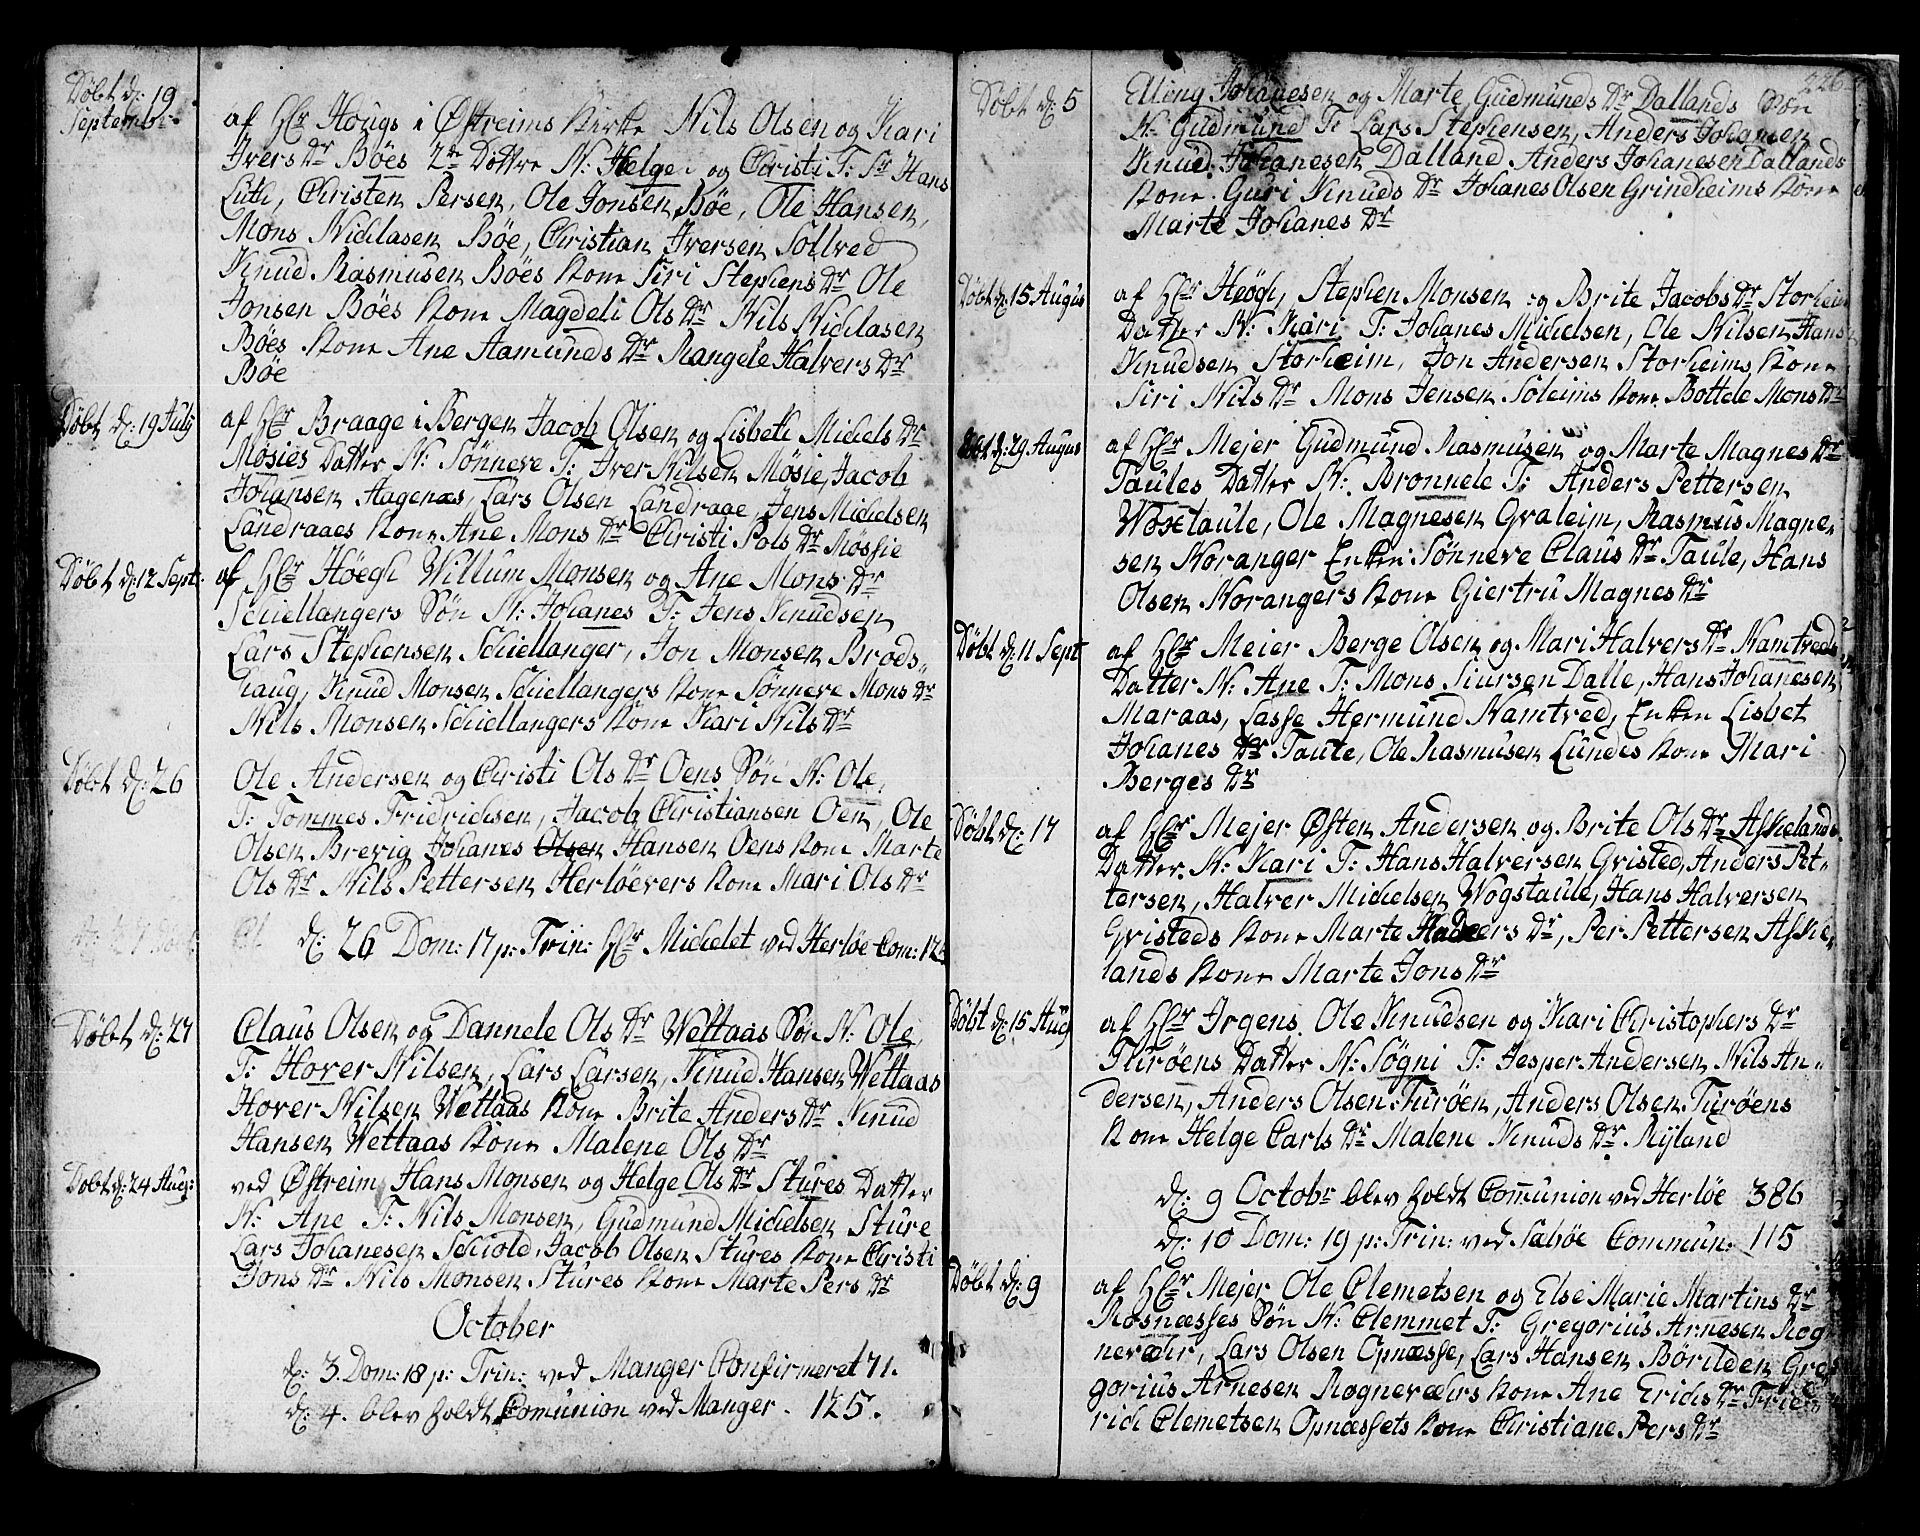 Døbt d: 19
Septembr
af Hr Hougs i Østreims Kirke Nils Olsen og Kari
Ivers Dr Bøes 2de Døttre N: Helge og Christi T: Sr Hans
Luth, Christen Persen, Ole Jonsen Bøe, Ole Hansen,
Mons Nichlasen Bøe, Christian Iversen Sollved
Knud Rasmusen Bøes Kone Siri Stephens Dr Ole
Jonsen Bøes Kone Magdeli Ols Dr Nils Nichlasen
Bøes Kone Ane Aamunds Dr Rangele Halvers Dr
Bøe
Døbt d: 19 July
af Hr Braage i Bergen Jacob Olsen og Lisbeth Michels Dr
Møsies Datter N: Sønneve T: Iver Nilsen Møsie, Jacob
Johansen Aagenæs, Lars Olsen Landraae, Jens Michelsen
Landraaes Kone Ane Mons Dr Christi Pols Dr Møssie
Døbt d: 12 Sept:
af Hr Høegh Willum Monsen og Ane Mons Dr
Schiellangers Søn N: Johanes T: Jens Knudsen
Lars Stephensen Schiellanger, Jon Monsen Brods-
haug, Knud Monsen Schiellangers Kone Sønneve Mons Dr
Nils Monsen Schiellangers Kone Kari Nils Dr
Døbt d: 26
Ole Andersen og Christi Ols Dr Oens Søn N: Ole,
T: Tommes Fridrichsen, Jacob Christiansen Oen, Ole
Olsen Brevig Johanes Olsen Hansen Oens Kone Marte
Ols Dr Nils Pettersen Herløevers Kone Mari Ols Dr
d: 26 Dom: 17 p: Trin: Hr Michelet ved Herløe Com: 12
Døbt d: 27
Claus Olsen og Dannele Ols Dr Wettaas Søn N: Ole
T: Hover Nilsen, Lars Larsen, Knud Hansen Wettaas
Hover Nilsen Wettaas Kone Brite Anders Dr Knud
Hansen Wettaas Kone Malene Ols Dr
Døbt d: 24 Aug:
ved Østreim Hans Monsen og Helge Ols Dr Stures Datter
N: Ane T: Nils Monsen, Gudmund Michelsen Sture
Lars Johanesen Schiold, Jacob Olsen Stures Kone Christi
Jons Dr Nils Monsen Stures Kone Marte Pers Dr
October
d: 3 Dom: 18 p: Trin: ved Manger Confirmeret 71.
d: 4. blev holdt Comunion ved Manger. 125.
226
Døbt d: 5
Elling Johanesen og Marte Gudmunds Dr Dallands Søn
N: Gudmund T: Lars Stephensen, Anders Johansen
Knud Johanesen Dalland, Anders Johanesen Dallands
Kone Guri Knuds Dr Johanes Olsen Grindheims Kone
Marte Johanes Dr
Døbt d: 15 Augus
af Hr Høgh, Stephen Monsen og Brite Jacobs Dr Storheim
Datter N: Kari T: Johanes Michelsen, Ole Nilsen, Hans
Knudsen Storheim, Jon Andersen Storheims Kone
Siri Nils Dr Mons Jensen Soleims Kone Bottele Mons Dr
Døbt d: 29 Augus
af Hr Mejer Gudmund Rasmusen og Marte Magnes Dr
Taules Datter N: Bronnele T: Anders Pettersen
Woxtaule, Ole Magnesen Gvaleim, Rasmus Magne,
sen Noranger Enken Sønneve Claus Dr Taule, Hans
Olsen Norangers Kone Giertru Magnes Dr
Døbt d: 11 Sept
af Hr Meier Berge Olsen og Mari Halvers Dr Namtveds
Datter N: Ane T: Mons Siursen Dalle, Hans Johanesen
Maraas, Lasse Hermund Namtved, Enken Lisbet
Johanes Dr Taule, Ole Rasmusen Lundes Kone Mari
Berges Dr
Døbt d: 17
af Hr Mejer Østen Andersen og Brite Ols Dr Askelands
Datter N: Kari T: Hans Halversen Gristed, Anders Pet-
tersen, Halver Michelsen Wogstaule, Hans Halversen
Gvisteds Kone Marte Dr, Per Pettersen Askie,
lands Kone Marte Jons Dr
Døbt d: 15 Aug
af Hr Irgens, Ole Knudsen og Kari Christophers Dr
Turøens Datter N: Søgni T: Jesper Andersen, Nils An-
dersen, Anders Olsen Turøen, Anders Olsen Turøens
Kone Helge Carls Dr Malene Knuds Dr Myland
d: 9 Octobr blev holdt Comunion ved Herløe 386
d: 10 Dom: 19 p: Trin: ved Sabøe Commun: 115
Døbt d: 9
af Hr Mejer Ole Clemetsen og Else Marie Martins Dr
Rosnæsses Søn N: Clemmet T: Gregorius Arnesen Rog
neværir, Lars Olsen Opnæsse, Lars Hansen Børilden Gre
gorius Arnesen Rogneværirs Kone Ane Erichs Dr Frie,
rich Clemetsen Opnæssets Kone Christiane Pers Dr